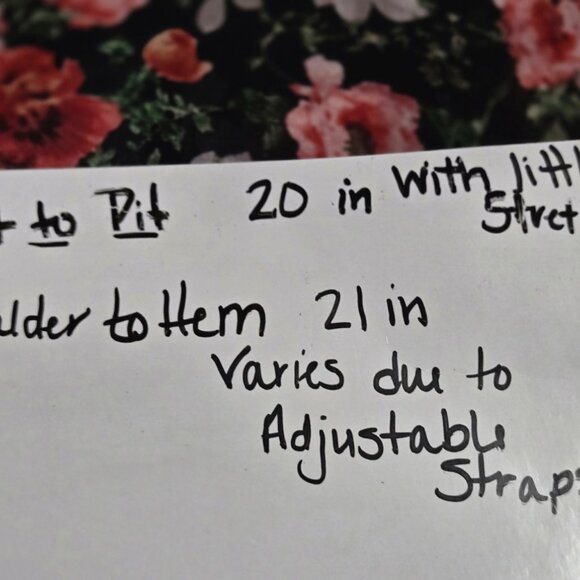 t to Pit 20 in With littl
Stret
ulder to Hem 21 in
Varies due to
Adjustable
Straps